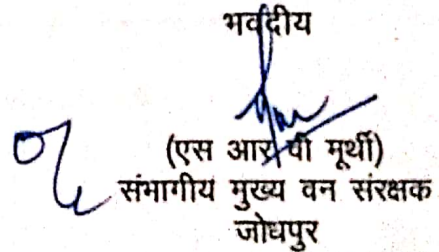 भवदीय
(एस आर पी मूर्थी)
संभागीय मुख्य वन संरक्षक
जोधपुर